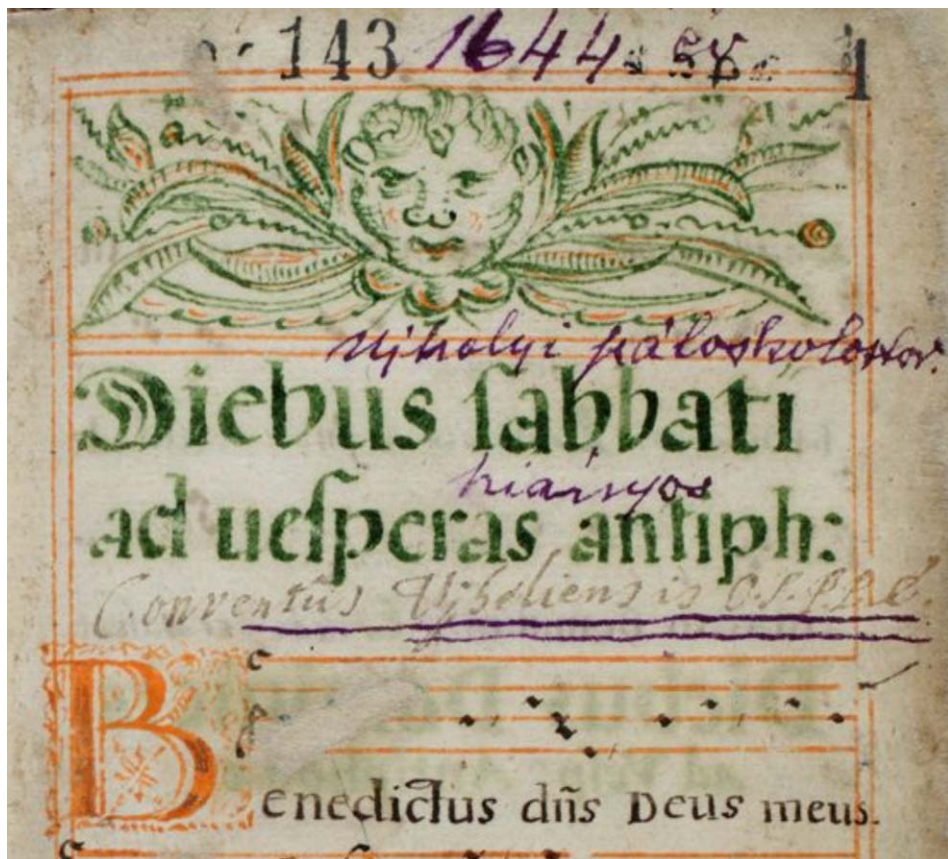 143 1644 1
ujhelyi páloskolostor.
Diebus ſabbati
hiányos
ad ueſperas antiph:
Conventûs Ujheliensis O.S.P.P.E.
Benedictus dn̄s Deus meus.